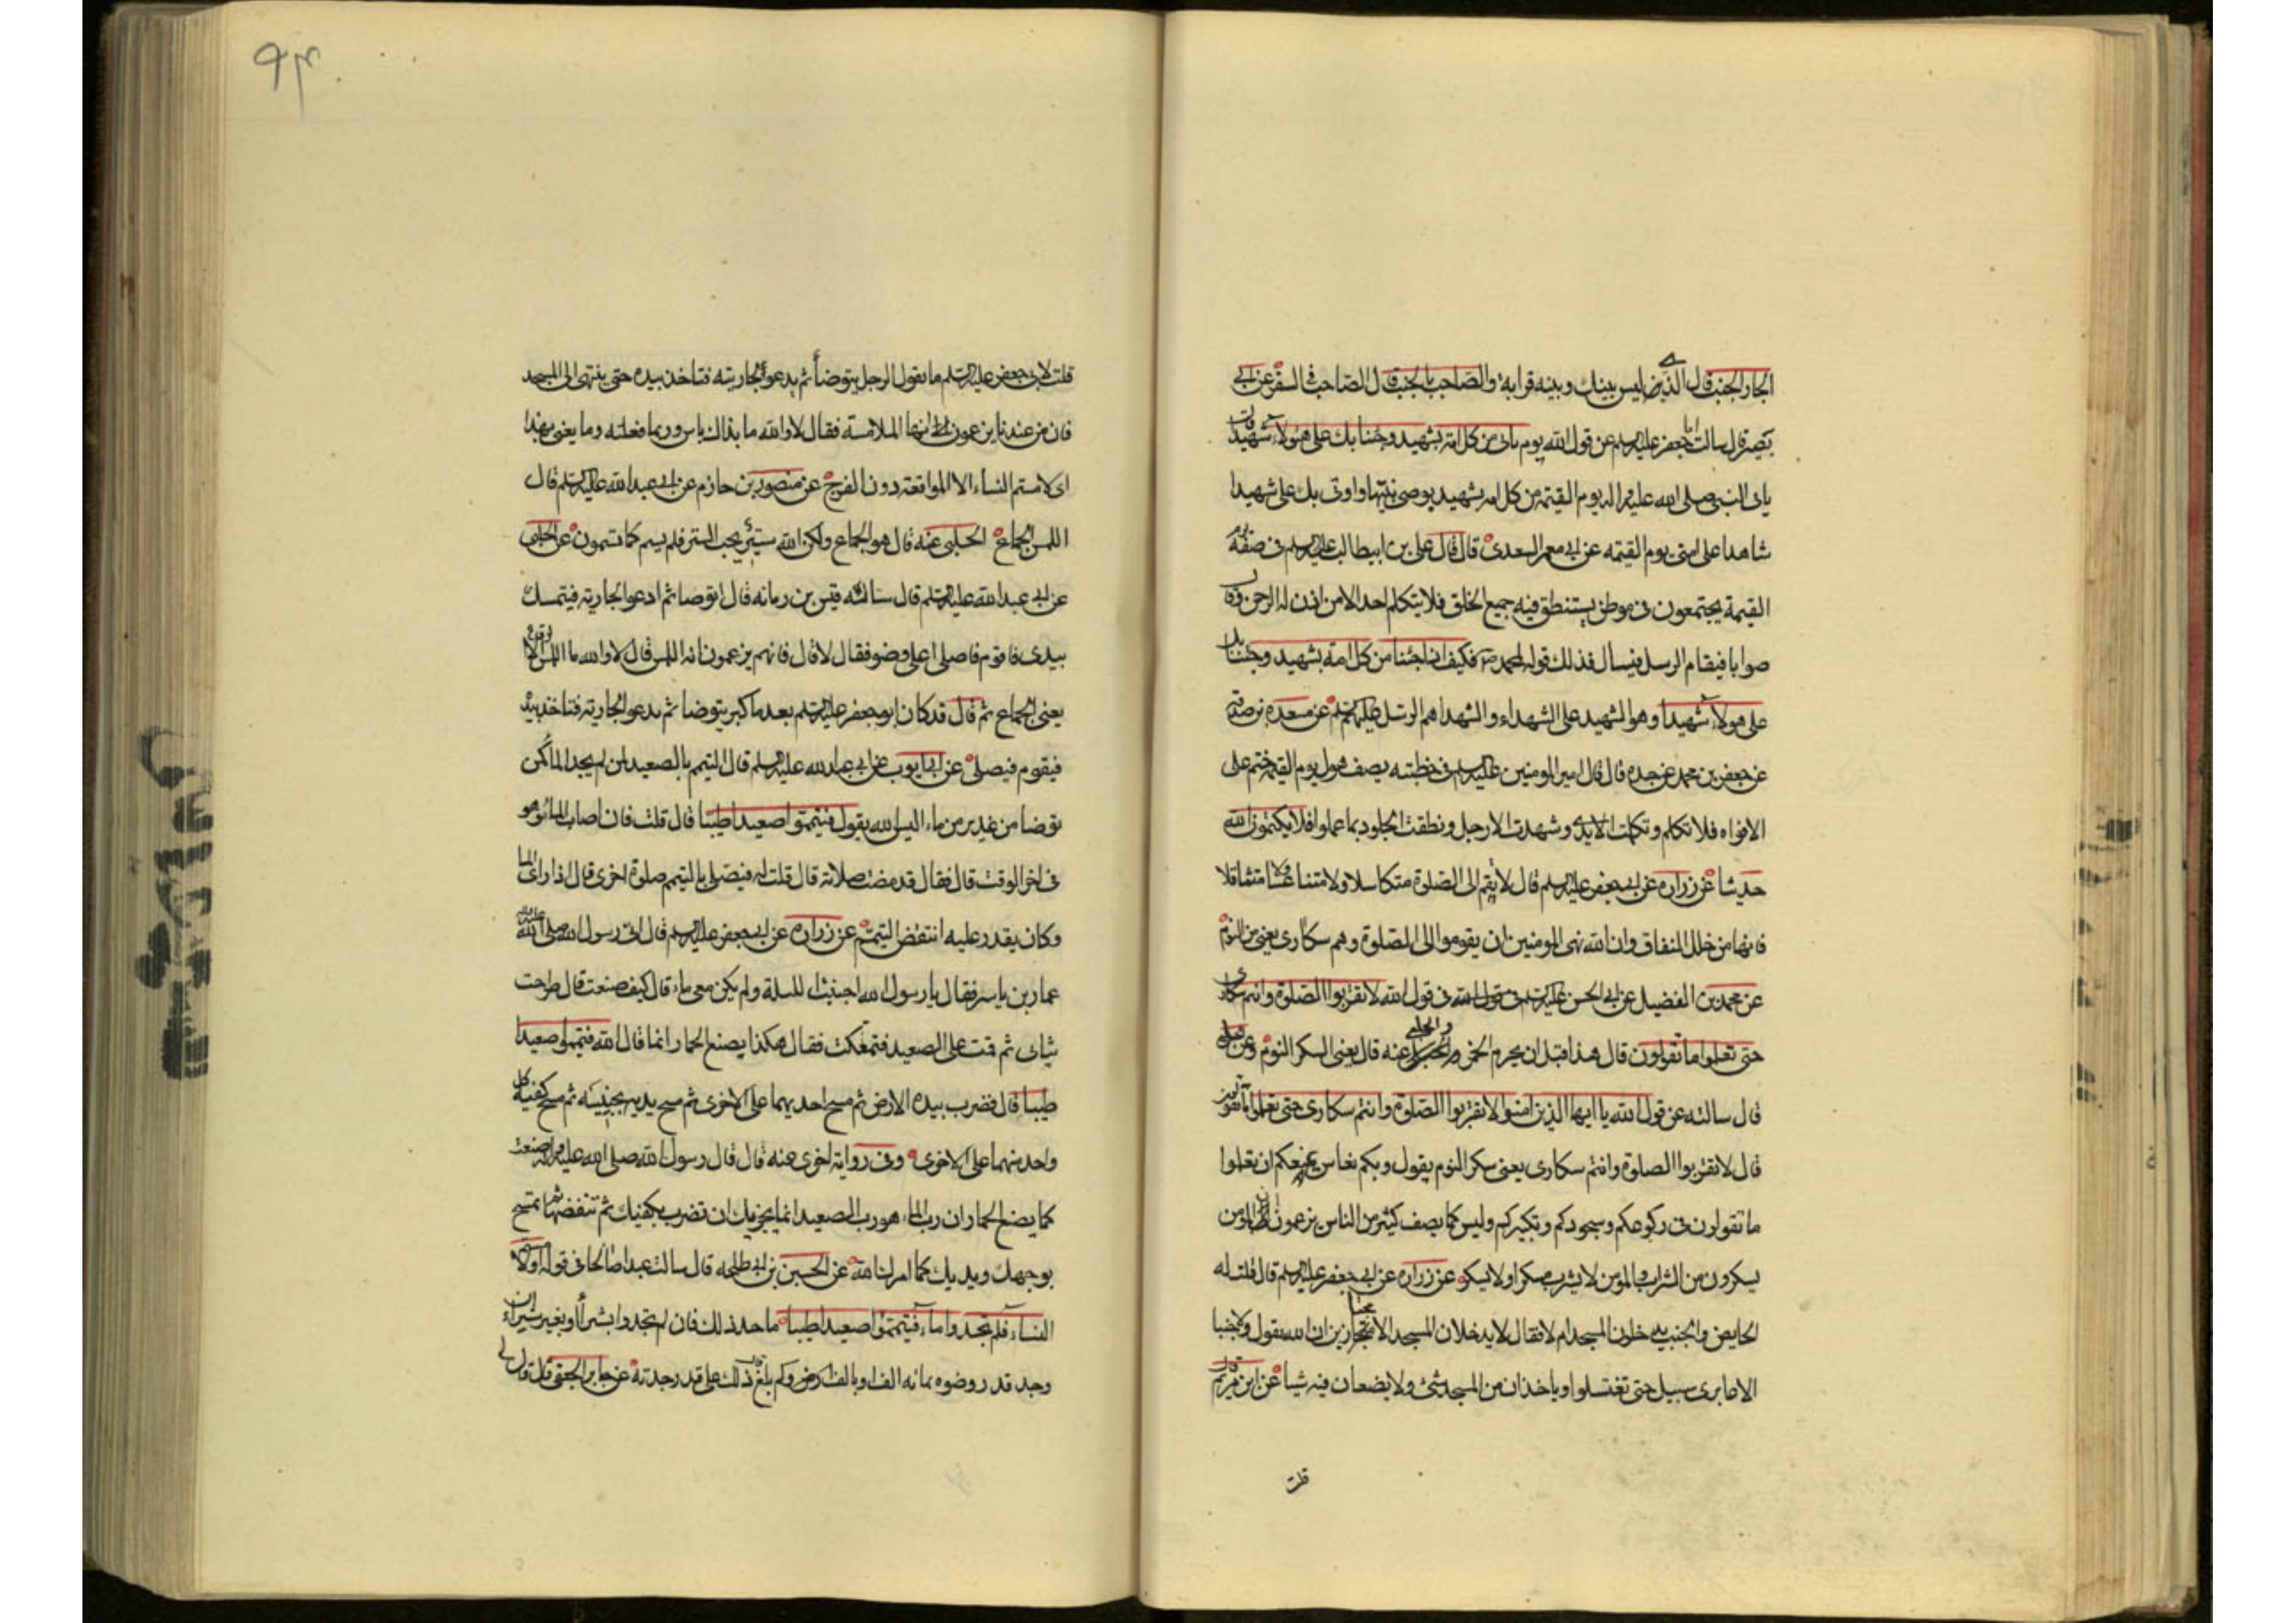 الجار الجنب قال الذي ليس بينك وبينه قرابة والصاحب بالجنب قال الصاحب في السفر عن ابى
بصير قال سالت ابا جعفر عليه السلم عن قول الله يوم ياتى من كل امة بشهيد وجئنا بك على هؤلاء شهيدا قال
ياتى النبى صلى الله عليه واله يوم القيمة من كل امة بشهيد بوصى نبيها واوتى بك على شهيدا
شاهدا على امتى يوم القيمه عن ابى معمر السعدى قال قال على بن ابيطالب عليه السلم فى صفة يوم
القيمة يجتمعون فى موطن يستنطق فيه جميع الخلق فلا يتكلم احد الا من اذن له الرحمن وقال
صوابا فيقام الرسل فيسال فذلك قوله لمحمد ص فكيف اذا جئنا من كل امة بشهيد وجئنا بك
على هولاء شهيدا وهو الشهيد على الشهداء والشهدا هم الرسل عليهم السلم عن مسعده بن صدقة
عن جعفر بن محمد عن جده قال قال امير المومنين عليه السلم فى خطبته يصف هول يوم القيمة ختم على
الافواه فلا تكلم وتكلمت الايدى وشهدت الارجل ونطقت الجلود بما عملوا فلا يكتمون الله
حديثا عن زراره عن ابى جعفر عليه السلم قال لا يقم الى الصلوة متكاسلا ولا متناعسا ولا متثاقلا
فانها من خلل النفاق وان الله نهى المومنين ان يقوموا الى الصلوة وهم سكارى يعنى من النوم
عن محمد بن الفضيل عن ابى الحسن عليه السلم فى قول الله فى قول الله لا تقربوا الصلوة وانتم سكارى
حتى تعلموا ما تقولون قال هذا قبل ان يحرم الخمر والحلبى عنه قال يعنى السكر النوم وعن الحلبى
قال سالته عن قول الله يا ايها الذين امنوا لا تقربوا الصلوة وانتم سكارى حتى تعلموا ما تقولون
قال لا تقربوا الصلوة وانتم سكارى يعنى سكر النوم يقول وبكم نعاس يمنعكم ان تعلموا
ما تقولون فى ركوعكم وسجودكم وتكبيركم وليس كما يصف كثير من الناس يزعمون ان المومن
يسكرون من الشراب والمؤمن لا يشرب مسكرا ولا يسكر عن زراره عن ابى جعفر عليه السلم قال قلت له
الحايض والجنب يدخلون المسجد ام لا فقال لا يدخلان المسجد الا مجتازين ان الله يقول ولا جنبا
الا عابرى سبيل حتى تغتسلوا وياخذان من المسجد شئ ولا يضعان فيه شيا عن ابى مريم قال
قلت
۹۴
قلت لابى جعفر عليه السلم ما تقول الرجل يتوضأ ثم يدعو الجاريته فتاخذ بيده حتى ينتهى الى المسجد
فان من عندنا يزعمون انها الملامسة فقال لا والله ما بذلك باس وربما فعلته وما يعنى بهذا
اى لامستم النساء الا المواقعة دون الفرج عن منصور بن حازم عن ابى عبد الله عليه السلم قال
اللمس الجماع الحلبى عنه قال هو الجماع ولكن الله ستير يحب الستر فلم يسم كما تسمون عن الحلبى
عن ابى عبد الله عليه السلم قال ساله قيس بن رمانه قال اتوضا ثم ادعو الجارية فتمسك
بيدى فاقوم فاصلى اعلى وضو فقال لا قال فانهم يزعمون انه اللمس قال لا والله ما اللمس الا الوقاع
يعنى الجماع ثم قال قد كان ابو جعفر عليه السلم بعد ما كبر يتوضا ثم يدعو الجارية فتاخذ بيده
فيقوم فيصلى عن ابى ايوب عن ابى عبد الله عليه السلم قال التيمم بالصعيد لمن لم يجد الماء كمن
توضا من غدير من ماء اليس الله يقول فتيمموا صعيدا طيبا قال قلت فان اصاب الماء وهو
فى اخر الوقت قال فقال قد مضت صلاته قال قلت له فيصلى بالتيمم صلوة اخرى قال اذا راى الما
وكان يقدر عليه انتقض التيمم عن زراره عن ابى جعفر عليه السلم قال اتى رسول الله صلى الله عليه واله
عمار بن ياسر فقال يا رسول الله اجنبت الليلة ولم يكن معى ماء قال كيف صنعت قال طرحت
ثيابى ثم قمت على الصعيد فتمعكت فقال هكذا يصنع الحمار انما قال الله فتيمموا صعيدا
طيبا قال فضرب بيده الارض ثم مسح احديهما على الاخرى ثم مسح يديه بجبينه ثم مسح كفيه كل
واحد منهما على الاخرى وفى رواية اخرى عنه قال قال رسول الله صلى الله عليه واله صنعت
كما يصنع الحمار ان رب الماء هو رب الصعيد انما يجزيك ان تضرب بكفيك ثم تنفضهما ثم تمسح
بوجهك ويديك كما امرك الله عن الحسين بن ابى طلحه قال سالت عبدا صالحا فى قوله او لامستم
النساء فلم تجدوا ماء فتيمموا صعيدا طيبا ما حد ذلك فان لم تجدوا بشراء او بغير شراء ان
وجد قدر وضوه بمائه الف او بالف وكم بلغ قال ذلك على قدر جدته عن جابر الجعفى قال قال لى